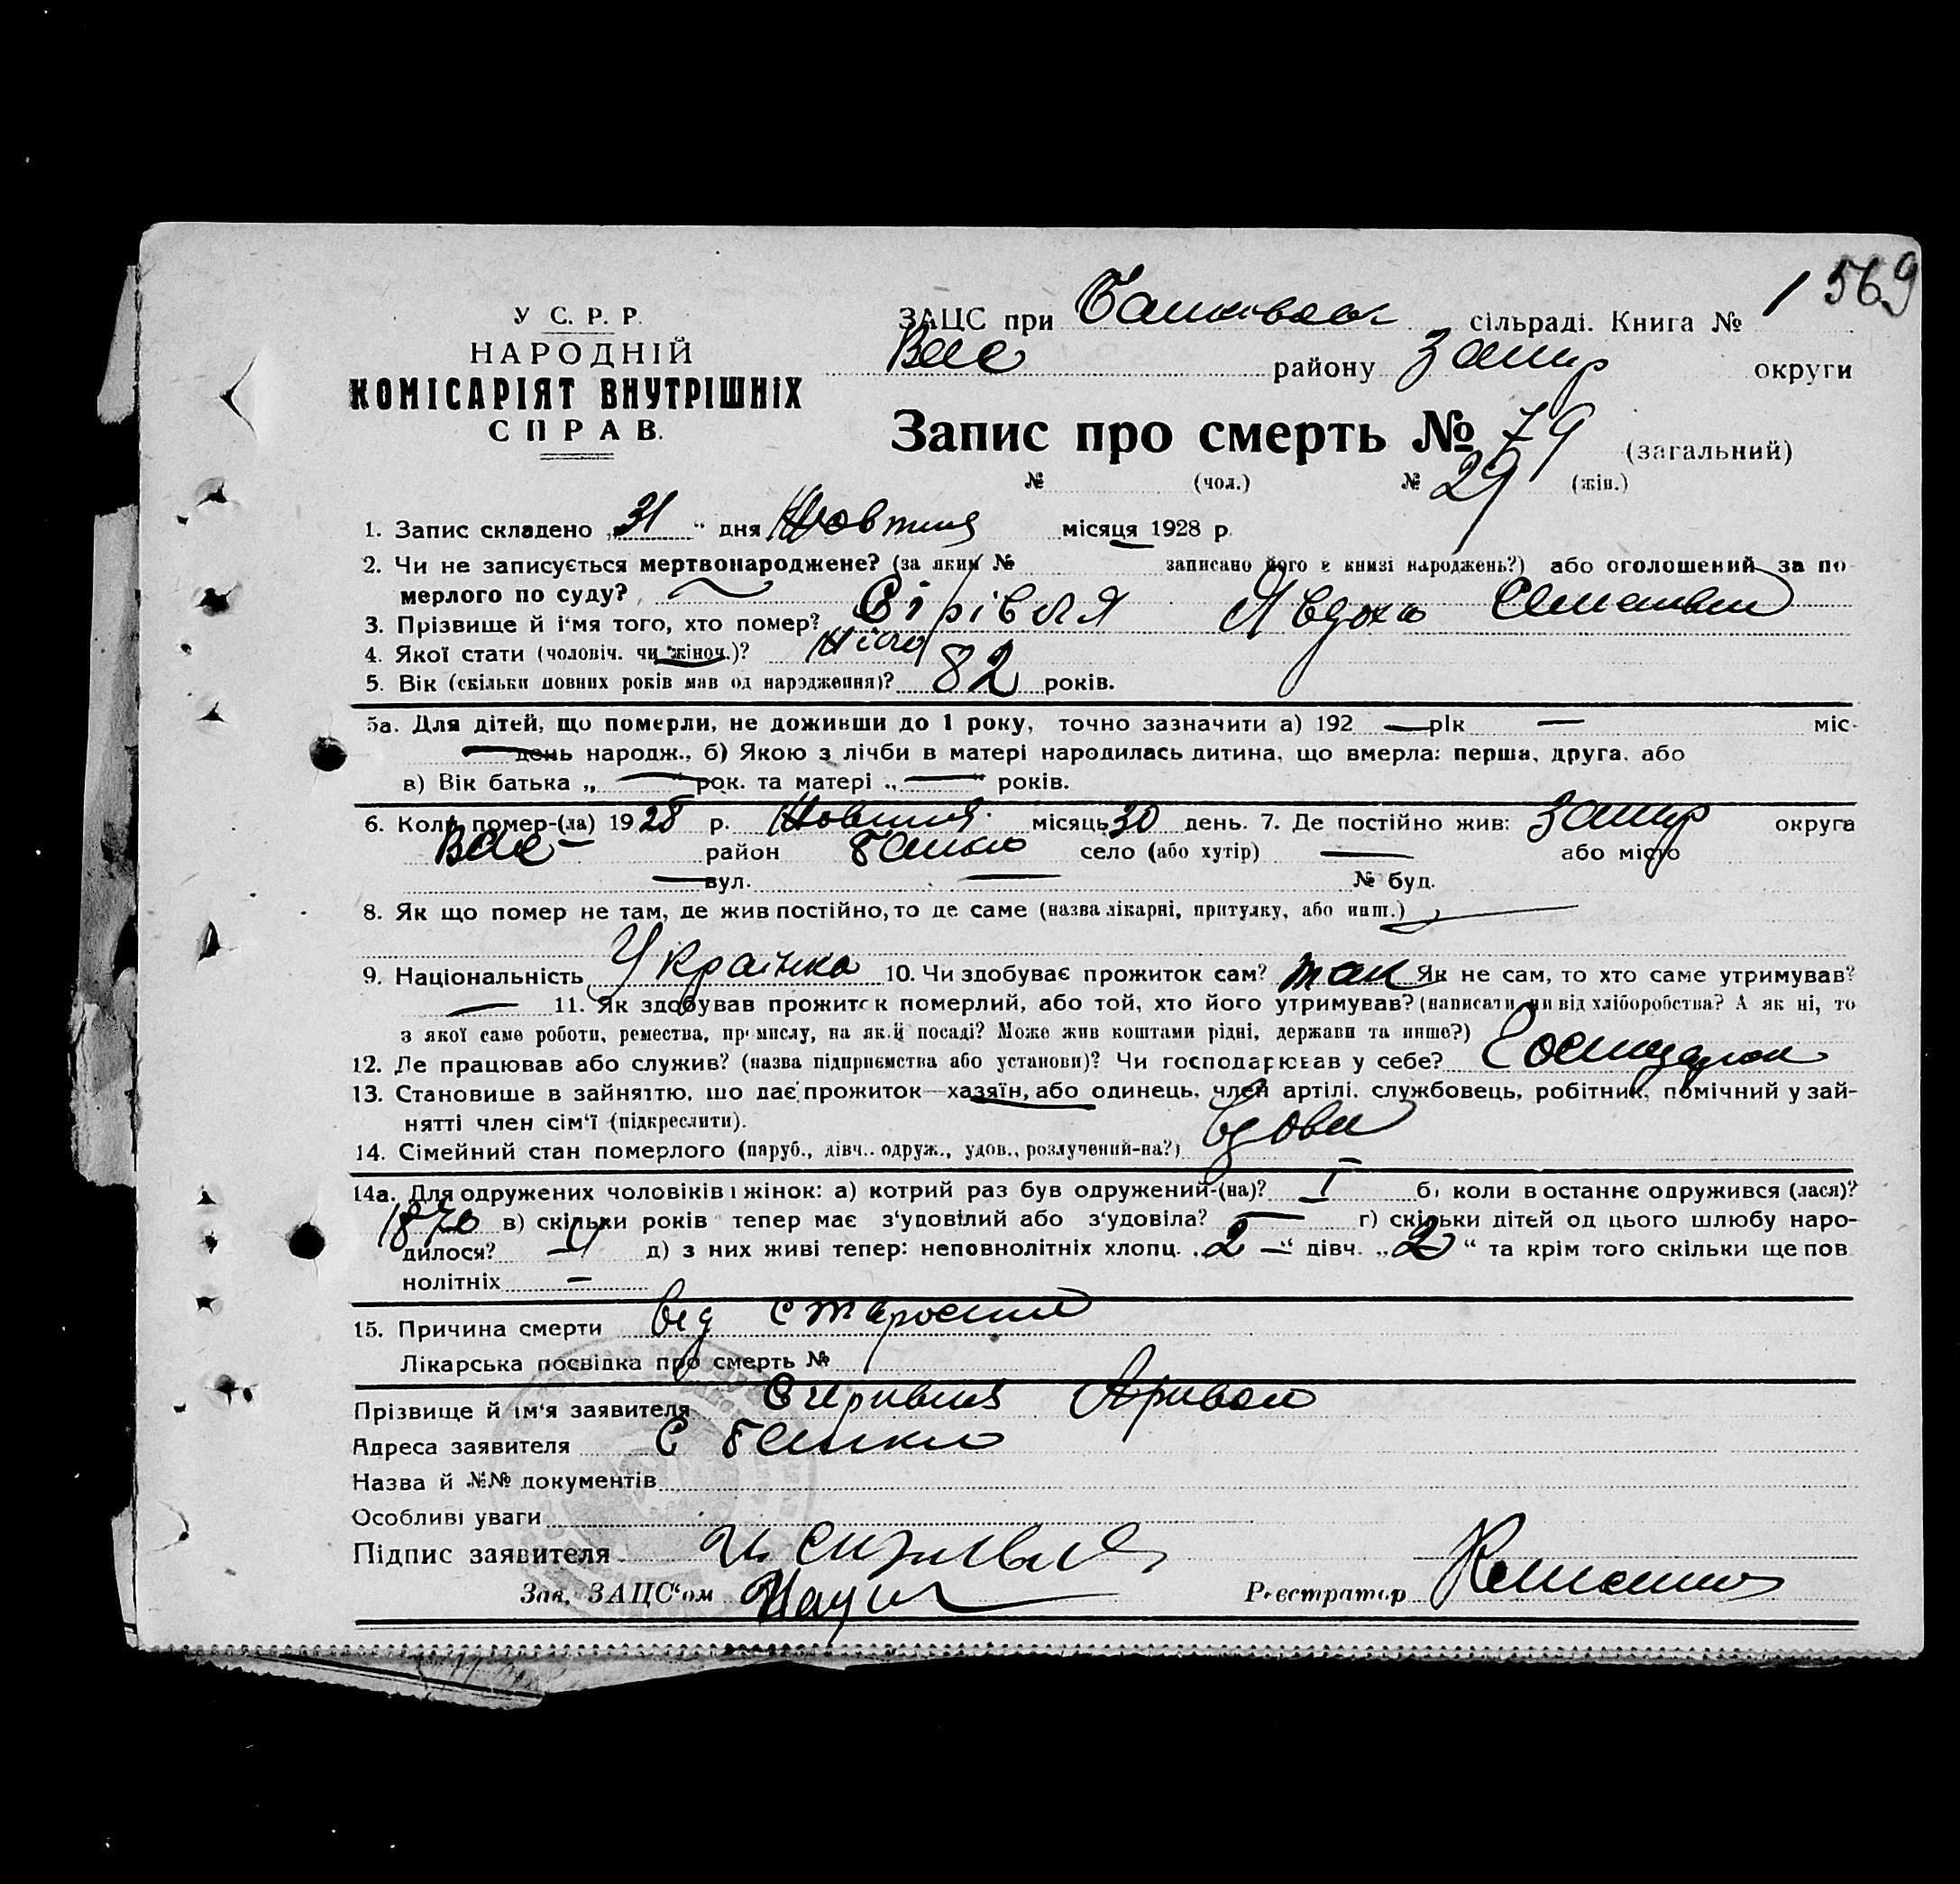 1 569
У С. Р. Р.
НАРОДНІЙ
КОМІСАРІЯТ ВНУТРІШНІХ
СПРАВ.
ЗАЦС при сільраді. Книга №
Вас району Запор округи
Запис про смерть № 79 (загальний)
№ (чол.) № 29 (жін.)
1. Запис складено „31“ дня Жовтня місяця 1928 р.
2. Чи не записується мертвонароджене? (за яким № записано його в книзі народжень?) або оголошений за по
мерлого по суду?
3. Прізвище й і'мя того, хто помер? Сірівля Явдоха
4. Якої стати (чоловіч. чи жіноч.)? Жіно
5. Вік (скільки повних років мав од народження)? 82 років.
5а. Для дітей, що померли, не доживши до 1 року, точно зазначити а) 192 — рік — міс-
— день народж., б) Якою з лічби в матері народилась дитина, що вмерла: перша, друга, або
в) Вік батька „—“ рок. та матері „—“ років.
6. Коли помер-(ла) 1928 р. Жовтня місяць 30 день. 7. Де постійно жив: Запор округа
Вас — район Балки село (або хутір) — або місто
— вул. — № буд.
8. Як що помер не там, де жив постійно, то де саме (назва лікарні, притулку, або инш.)
9. Національність Українка 10. Чи здобуває прожиток сам? так Як не сам, то хто саме утримував?
— 11. Як здобував прожиток померлий, або той, хто його утримував? (написати чи від хліборобства? А як ні, то
з якої саме роботи, ремества, промислу, на якій посаді? Може жив коштами рідні, держави та инше?)
12. Де працював або служив? (назва підприємства або установи)? Чи господарював у себе?
13. Становище в зайняттю, що дає прожиток—хазяїн, або одинець, член артілі, службовець, робітник, помічний у зай-
нятті член сім'ї (підкреслити).
14. Сімейний стан померлого (паруб., дівч.. одруж., удов., розлучений-на?) вдова
14а. Для одружених чоловіків і жінок: а) котрий раз був одружений-(на)? I б) коли в останнє одружився (лася)?
1870 в) скільки років тепер має з'удовілий або з'удовіла? — г) скільки дітей од цього шлюбу наро-
дилося? 4 д) з них живі тепер: неповнолітніх хлопц. „2 —“ дівч. „2“ та крім того скільки ще пов
нолітніх —
15. Причина смерти від старости
Лікарська посвідка про смерть №
Прізвище й ім'я заявителя
Адреса заявителя с Балки
Назва й №№ документів
Особливі уваги
Підпис заявителя
Зав. ЗАЦС'ом Реєстратор